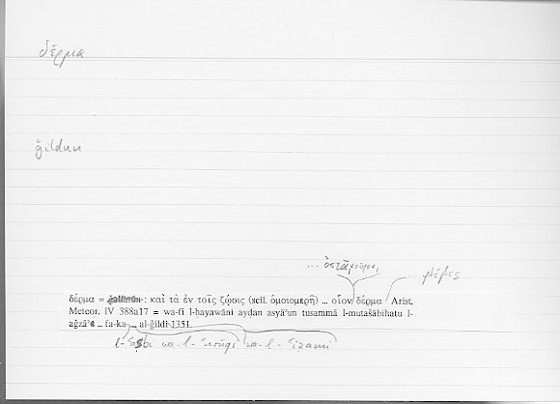 δέρμα
ǧildun
... ὀστᾶ, νεῦρον,
... φλέβες
δέρμα = ǧildun: καὶ τὰ ἐν τοῖς ζῴοις (scil. ὁμοιομερῆ) ... οἷον δέρμα Arist.
Meteor. IV 388a17 = wa-fī l-ḥayawāni ayḍan asyāʾun tusammā l-mutašābihatu l-
aǧzāʾi ... fa-ka-... al-ǧildi 1351.
wa-l-ʿurūqi wa-l-ʿiẓāmi